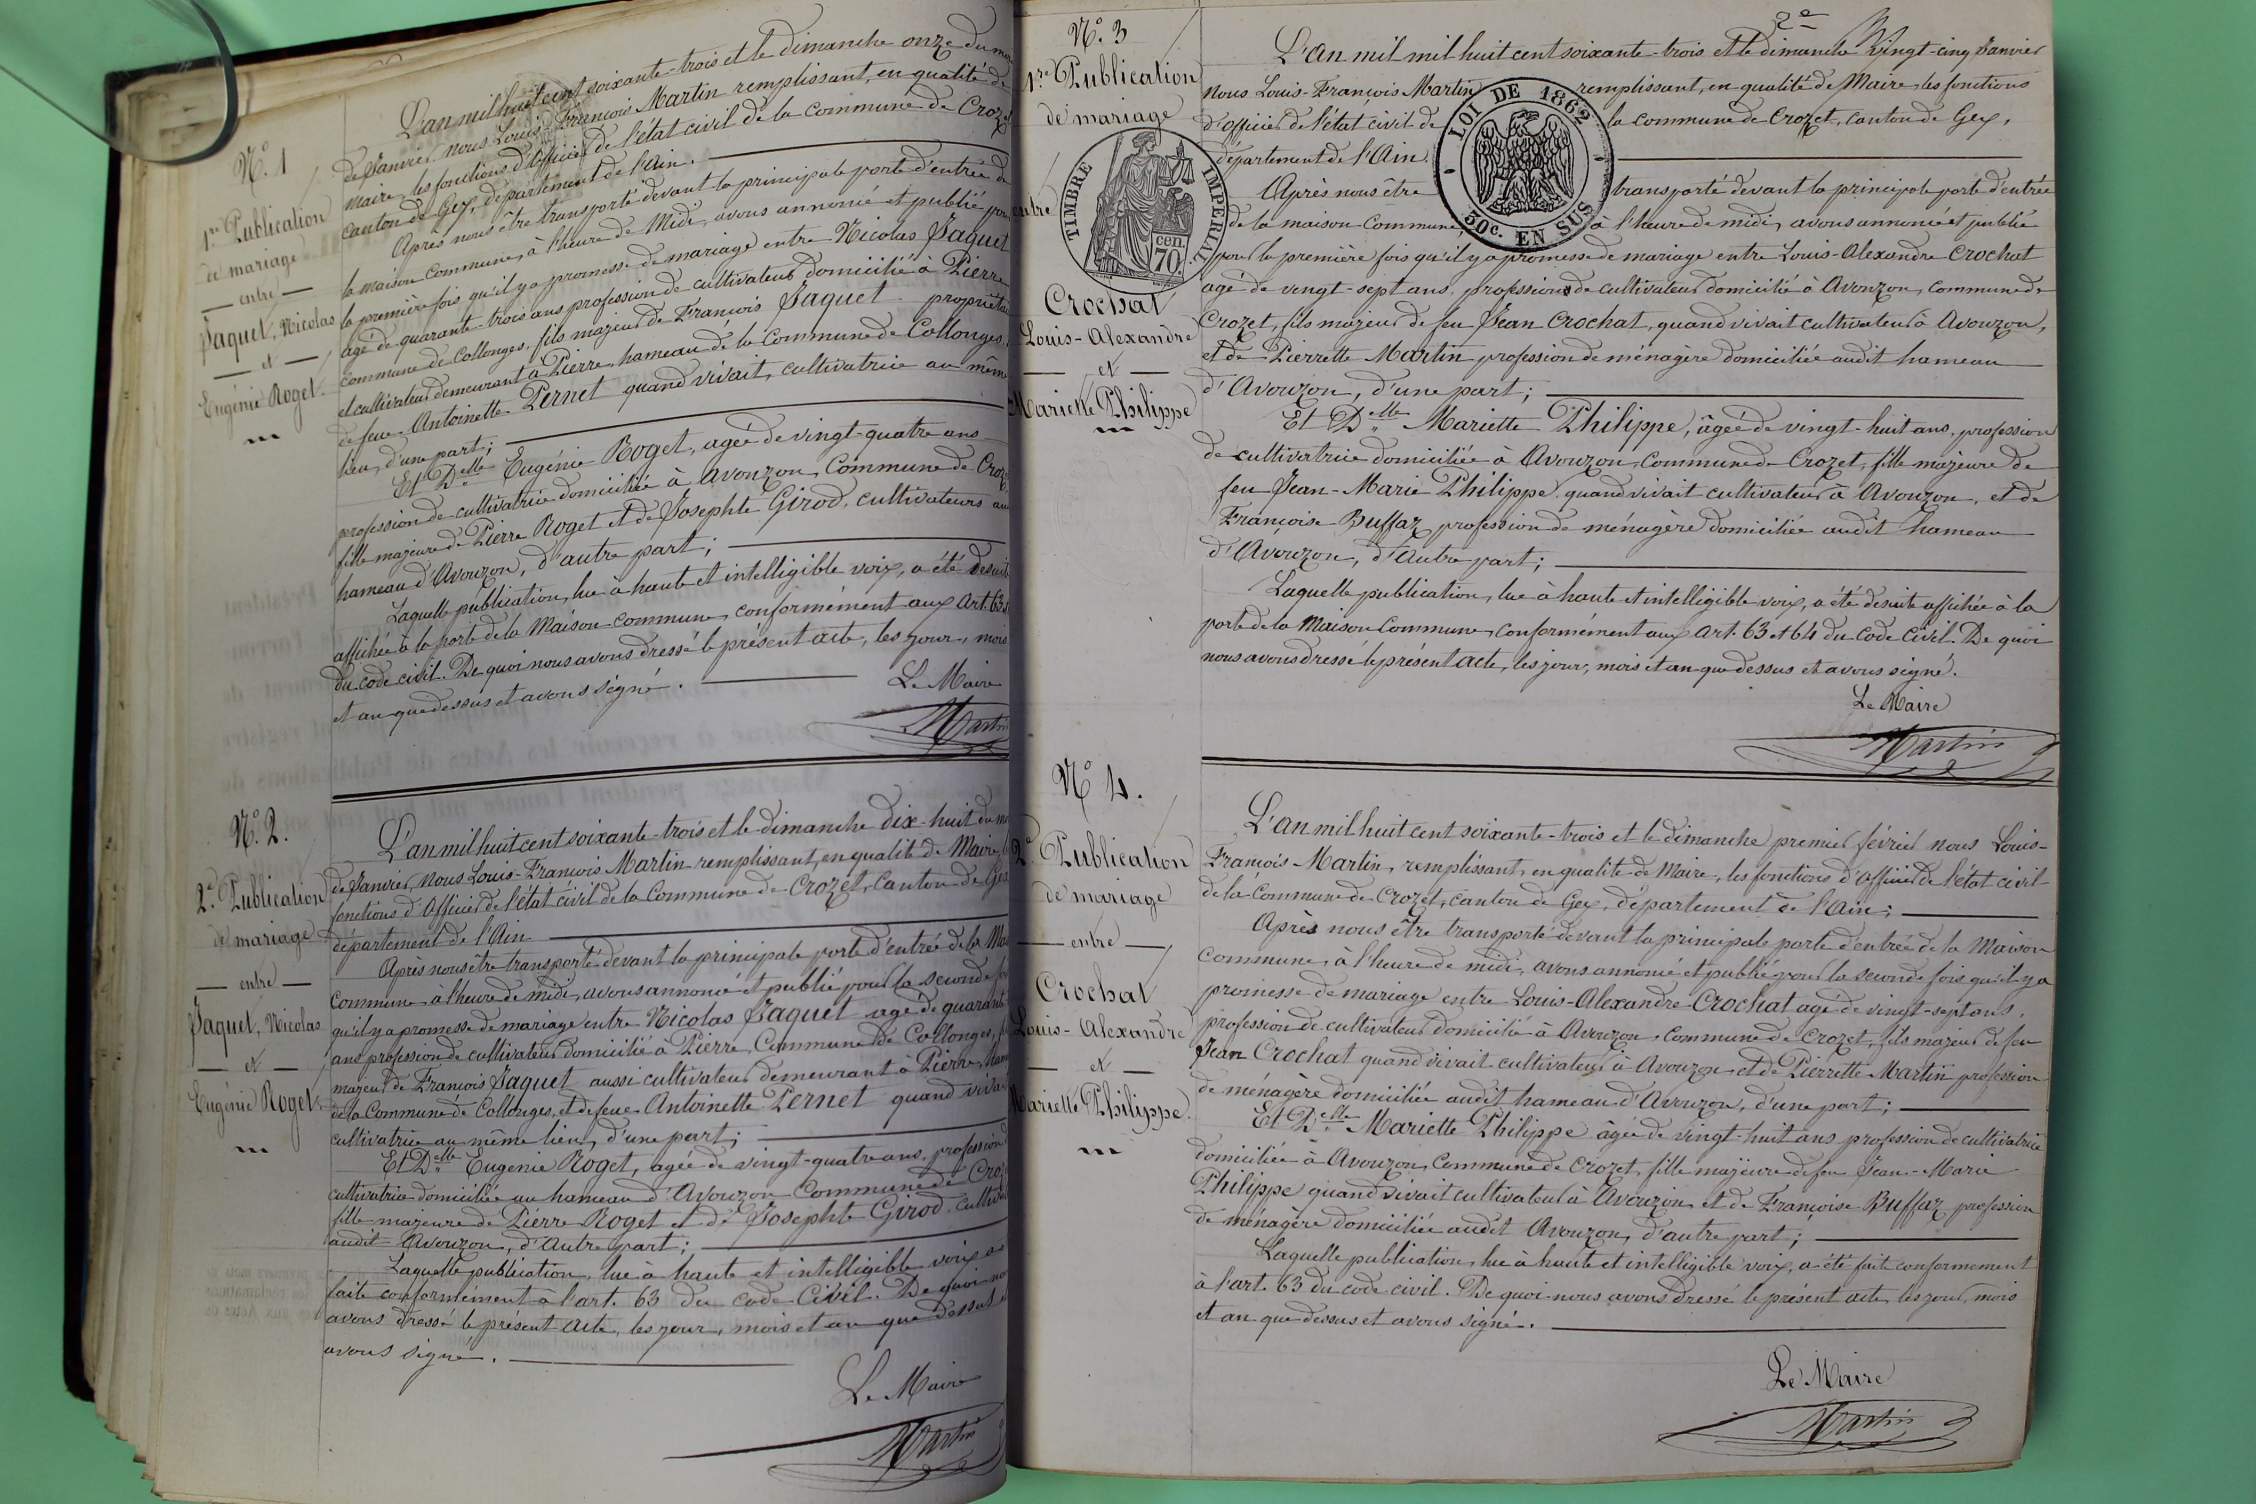 N.° 1
1re Publication
de mariage
entre
Jaquet, Nicolas
et
Eugénie Roget.
L'an mil huit cent soixante-trois et le dimanche onze du
de Janvier, nous Louis-François Martin remplissant, en qualité de
maire, les fonctions d'officier de l'état civil de la commune de Crozet
canton de Gex, département de l'Ain.
Après nous être transporté devant la principale porte d'entrée de
la maison commune, à l'heure de Midi, avons annoncé et publié pour
la première fois qu'il y a promesse de mariage entre Nicolas Jaquet
agé de quarante-trois ans profession de cultivateur domicilié à Pierre
commune de Collonges, fils majeur de François Jaquet propriétaire
et cultivateur demeurant à Pierre, hameau de la Commune de Collonges,
de feue Antoinette Pernet quand vivait, cultivatrice au même
lieu, d'une part;
Et Delle Eugénie Roget, agée de vingt-quatre ans
profession de cultivatrice domiciliée à Avouzon, Commune de Crozet
fille majeure de Pierre Roget et de Josephte Girod, cultivateurs au
hameau d'Avouzon, d'autre part;
Laquelle publication, lue à haute et intelligible voix, a été desuite
affichée à la porte de la Maison commune, conformément aux Art. 63
du code civil. De quoi nous avons dressé le présent acte, les jour, mois
et an que dessus et avons signé.
Le Maire
Martin
N.° 2.
2e Publication
de mariage
entre
Jaquet, Nicolas
et
Eugénie Roget
L'an mil huit cent soixante-trois et le dimanche dix-huit du
de Janvier, Nous Louis-François Martin remplissant, en qualité de Maire,
fonctions d'Officier de l'état civil de la Commune de Crozet, Canton de Gex
département de l'Ain
Après nous être transporté devant la principale porte d'entrée de la
Commune à l'heure de midi, avons annoncé et publié pour la seconde
qu'il y a promesse de mariage entre Nicolas Jaquet agé de quarante
ans profession de cultivateur domicilié à Pierre, Commune de Collonges,
majeur de François Jaquet aussi cultivateur demeurant à Pierre,
de la Commune de Collonges, et de feue Antoinette Pernet quand
cultivatrice au même lieu, d'une part;
Et Delle Eugenie Roget, agée de vingt-quatre ans, profession
cultivatrice domiciliée au hameau d'Avouzon Commune de
fille majeure de Pierre Roget et de Josephte Girod,
audit Avouzon, d'autre part;
Laquelle publication, lue à haute et intelligible voix
faite conformément à l'art. 63 du code Civil. De quoi
avons dressé le présent acte, les jour, mois et an que dessus
avons signé.
Le Maire
Martin
2e
N.° 3
1re Publication
de mariage
entre
Crochat
Louis-Alexandre
et
Mariette Philippe
TIMBRE IMPERIAL
70 cen.
LOI DE 1862
30c. EN SUS
L'an mil mil huit cent soixante-trois et le dimanche vingt-cinq Janvier
nous Louis-François Martin remplissant, en qualité de Maire, les fonctions
d'officier de l'état civil de la commune de Crozet, canton de Gex,
département de l'Ain.
Après nous être transporté devant la principale porte d'entrée
de la maison commune, à l'heure de midi, avons annoncé et publié
pour la première fois qu'il y a promesse de mariage entre Louis-Alexandre Crochat
agé de vingt-sept ans, profession de cultivateur domicilié à Avouzon, commune de
Crozet, fils majeur de feu Jean Crochat, quand vivait cultivateur à Avouzon,
et de Pierrette Martin profession de ménagère domiciliée audit hameau
d'Avouzon, d'une part;
Et Delle Mariette Philippe, âgée de vingt-huit ans, profession
de cultivatrice domiciliée à Avouzon, commune de Crozet, fille majeure de
feu Jean-Marie Philippe, quand vivait cultivateur à Avouzon, et de
Françoise Buffaz, profession de ménagère domiciliée audit hameau
d'Avouzon, d'autre part;
Laquelle publication, lue à haute et intelligible voix, a été desuite affichée à la
porte de la Maison Commune, conformément aux Art. 63 et 64 du code Civil. De quoi
nous avons dressé le présent acte, les jour, mois et an que dessus et avons signé.
Le Maire
Martin
N° 4.
2e Publication
de mariage
entre
Crochat
Louis-Alexandre
et
Mariette Philippe.
L'an mil huit cent soixante-trois et le dimanche premier février nous Louis-
François Martin, remplissant, en qualité de Maire, les fonctions d'officier de l'état civil
de la Commune de Crozet, canton de Gex, département de l'Ain;
Après nous être transporté devant la principale porte d'entrée de la Maison
commune, à l'heure de midi, avons annoncé et publié pour la seconde fois qu'il y a
promesse de mariage entre Louis-Alexandre Crochat agé de vingt-sept ans,
profession de cultivateur domicilié à Avouzon, commune de Crozet, fils majeur de feu
Jean Crochat quand vivait cultivateur à Avouzon et de Pierrette Martin profession
de ménagère domiciliée audit hameau d'Avouzon, d'une part;
Et Delle Mariette Philippe âgée de vingt-huit ans profession de cultivatrice
domiciliée à Avouzon, Commune de Crozet, fille majeure de feu Jean-Marie
Philippe quand vivait cultivateur à Avouzon et de Françoise Buffaz profession
de ménagère domiciliée audit Avouzon, d'autre part;
Laquelle publication, lue à haute et intelligible voix, a été fait conformément
à l'art. 63 du code civil. De quoi nous avons dressé le présent acte, les jour, mois
et an que dessus et avons signé.
Le Maire
Martin